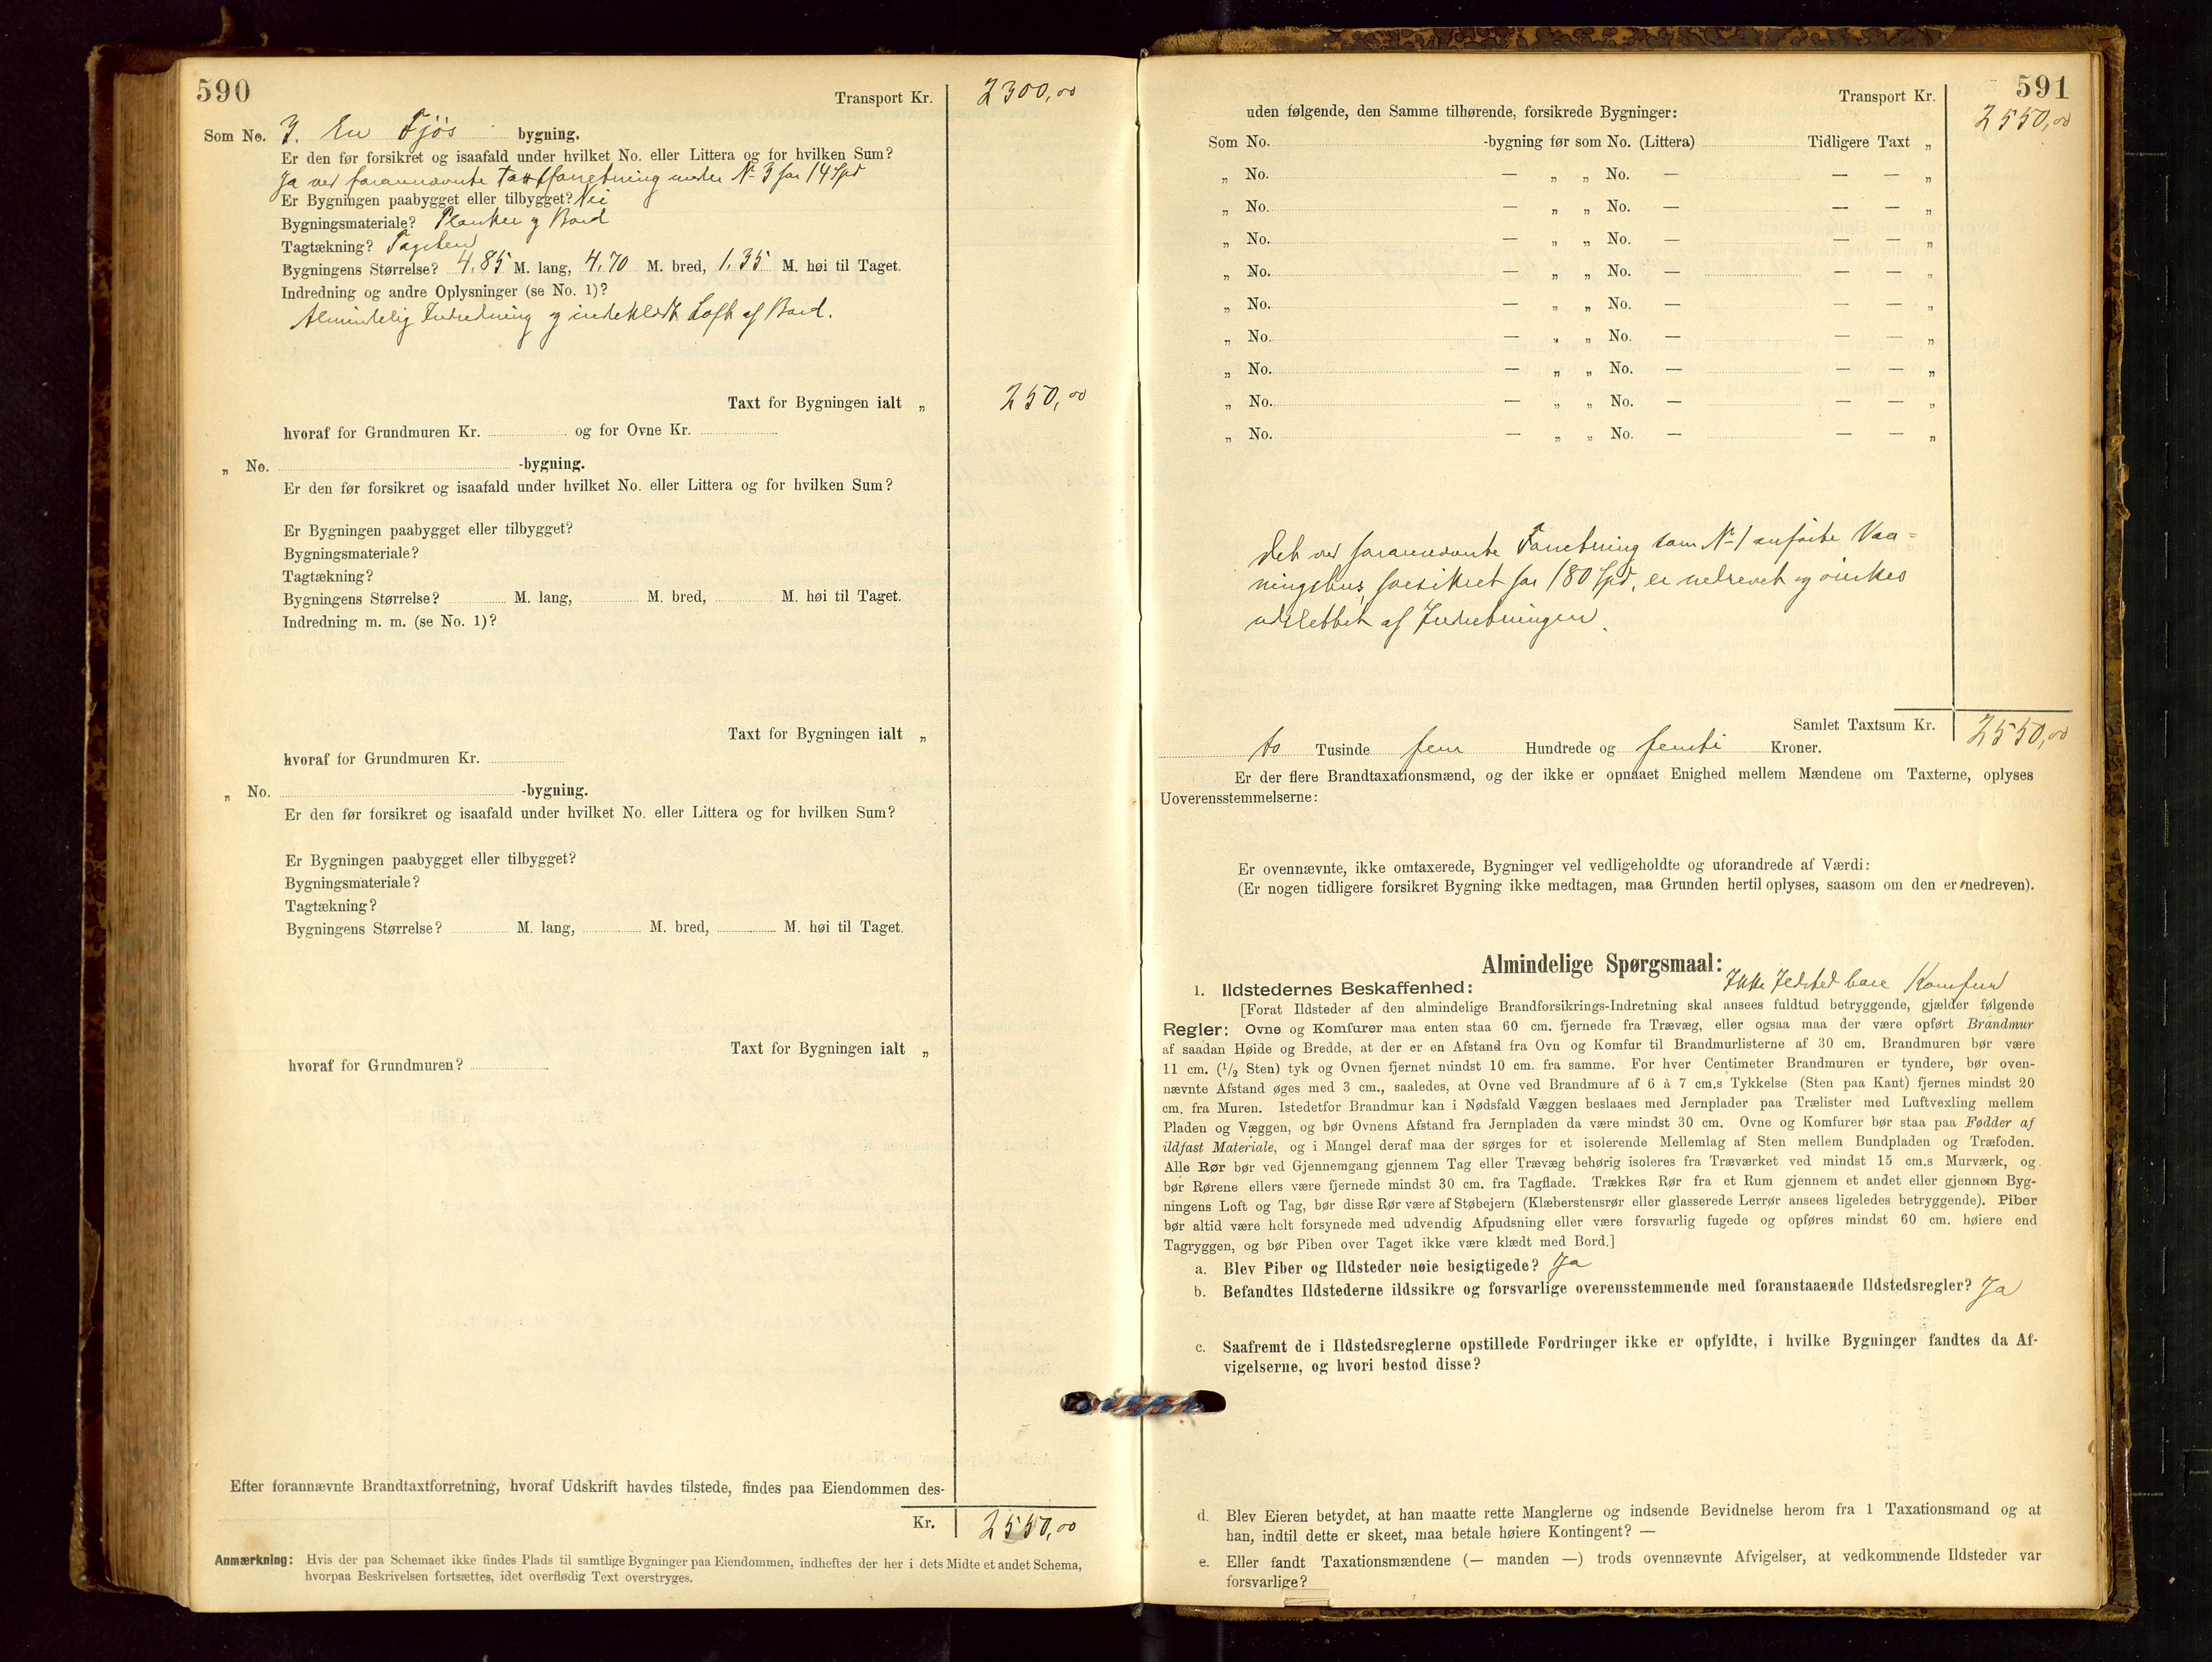 590
Transport Kr. 2300,00
Som No. 3. En Fjøs bygning.
Er den før forsikret og isaafald under hvilket No. eller Littera og for hvilken Sum?
Ja ved forannævnte Taxtforretning under No 3 for 14 Spd
Er Bygningen paabygget eller tilbygget? Nei
Bygningsmateriale? Planker og Bord
Tagtækning? Tagsten
Bygningens Størrelse? 4,85 M. lang, 4,70 M. bred, 1,35 M. høi til Taget.
Indredning og andre Oplysninger (se No. 1)?
Almindelig Indredning og indeklædt Loft af Bord.
Taxt for Bygningen ialt „ 250,00
hvoraf for Grundmuren Kr. og for Ovne Kr.
„ No. -bygning.
Er den før forsikret og isaafald under hvilket No. eller Littera og for hvilken Sum?
Er Bygningen paabygget eller tilbygget?
Bygningsmateriale?
Tagtækning?
Bygningens Størrelse? M. lang, M. bred, M. høi til Taget.
Indredning m. m. (se No. 1)?
Taxt for Bygningen ialt „
hvoraf for Grundmuren Kr.
„ No. -bygning.
Er den før forsikret og isaafald under hvilket No. eller Littera og for hvilken Sum?
Er Bygningen paabygget eller tilbygget?
Bygningsmateriale?
Tagtækning?
Bygningens Størrelse? M. lang, M. bred, M. høi til Taget.
Taxt for Bygningen ialt „
hvoraf for Grundmuren?
Efter forannævnte Brandtaxtforretning, hvoraf Udskrift havdes tilstede, findes paa Eiendommen des-
Kr. 2550,00
Anmærkning: Hvis der paa Schemaet ikke findes Plads til samtlige Bygninger paa Eiendommen, indheftes der her i dets Midte et andet Schema,
hvorpaa Beskrivelsen fortsættes, idet overflødig Text overstryges.
591
Transport Kr. 2550,00
uden følgende, den Samme tilhørende, forsikrede Bygninger:
Som No. -bygning før som No. (Littera) Tidligere Taxt „
„ No. — „ „ No. — — — „
„ No. — „ „ No. — — — „
„ No. — „ „ No. — — — „
„ No. — „ „ No. — — — „
„ No. — „ „ No. — — — „
„ No. — „ „ No. — — — „
„ No. — „ „ No. — — — „
„ No. — „ „ No. — — — „
„ No. — „ „ No. — — — „
Det ved forannævnte Forretning som No 1 anførte Vaa=
ningshus, forsikret for 180 Spd, er nedrevet og ønskes
udslettet af Indretningen.
Samlet Taxtsum Kr. 2550,00
to Tusinde fem Hundrede og femti Kroner.
Er der flere Brandtaxationsmænd, og der ikke er opnaaet Enighed mellem Mændene om Taxterne, oplyses
Uoverensstemmelserne:
Er ovennævnte, ikke omtaxerede, Bygninger vel vedligeholdte og uforandrede af Værdi:
(Er nogen tidligere forsikret Bygning ikke medtagen, maa Grunden hertil oplyses, saasom om den er nedreven).
Almindelige Spørgsmaal:
1. Ildstedernes Beskaffenhed: Ikke Ildsted bare Komfur
[Forat Ildsteder af den almindelige Brandforsikrings-Indretning skal ansees fuldtud betryggende, gjælder følgende
Regler: Ovne og Komfurer maa enten staa 60 cm. fjernede fra Trævæg, eller ogsaa maa der være opført Brandmur
af saadan Høide og Bredde, at der er en Afstand fra Ovn og Komfur til Brandmurlisterne af 30 cm. Brandmuren bør være
11 cm. (1/2 Sten) tyk og Ovnen fjernet mindst 10 cm. fra samme. For hver Centimeter Brandmuren er tyndere, bør oven-
nævnte Afstand øges med 3 cm., saaledes, at Ovne ved Brandmure af 6 à 7 cm.s Tykkelse (Sten paa Kant) fjernes mindst 20
cm. fra Muren. Istedetfor Brandmur kan i Nødsfald Væggen beslaaes med Jernplader paa Trælister med Luftvexling mellem
Pladen og Væggen, og bør Ovnens Afstand fra Jernpladen da være mindst 30 cm. Ovne og Komfurer bør staa paa Fødder af
ildfast Materiale, og i Mangel deraf maa der sørges for et isolerende Mellemlag af Sten mellem Bundpladen og Træfoden.
Alle Rør bør ved Gjennemgang gjennem Tag eller Trævæg behørig isoleres fra Træværket ved mindst 15 cm.s Murværk, og
bør Rørene ellers være fjernede mindst 30 cm. fra Tagflade. Trækkes Rør fra et Rum gjennem et andet eller gjennem Byg-
ningens Loft og Tag, bør disse Rør være af Støbejern (Klæberstensrør eller glasserede Lerrør ansees ligeledes betryggende). Piber
bør altid være helt forsynede med udvendig Afpudsning eller være forsvarlig fugede og opføres mindst 60 cm. høiere end
Tagryggen, og bør Piben over Taget ikke være klædt med Bord.]
a. Blev Piber og Ildsteder nøie besigtigede? Ja
b. Befandtes Ildstederne ildssikre og forsvarlige overensstemmende med foranstaaende Ildstedsregler? Ja
c. Saafremt de i Ildstedsreglerne opstillede Fordringer ikke er opfyldte, i hvilke Bygninger fandtes da Af-
vigelserne, og hvori bestod disse?
d. Blev Eieren betydet, at han maatte rette Manglerne og indsende Bevidnelse herom fra 1 Taxationsmand og at
han, indtil dette er skeet, maa betale høiere Kontingent? —
e. Eller fandt Taxationsmændene (— manden —) trods ovennævnte Afvigelser, at vedkommende Ildsteder var
forsvarlige?